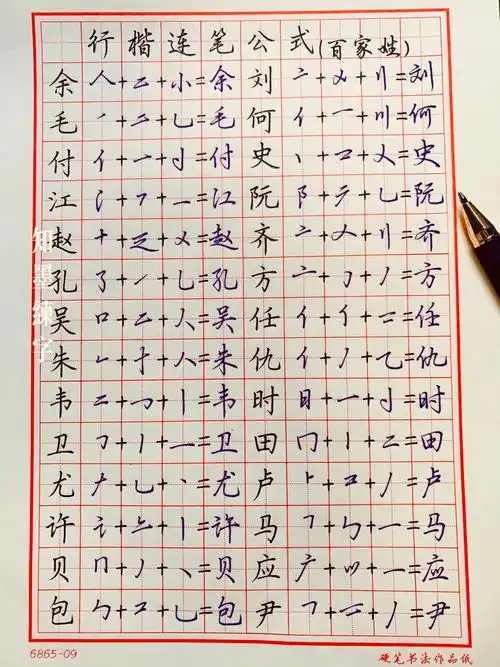 行楷连笔公式(百家姓)
余 人+二+小=余 刘 亠+乂+刂=刘
毛 ㇒+二+乚=毛 何 亻+一+刂=何
付 亻+一+亅=付 史 丶+口+乂=史
江 氵+㇇+一=江 阮 阝+二+乚=阮
赵 十+㇋+乂=赵 齐 亠+乂+刂=齐
孔 孑+㇀+乚=孔 方 亠+㇆+丿=方
吴 口+二+人=吴 任 亻+亻+二=任
朱 𠂉+丨+人=朱 仇 亻+丿+乙=仇
韦 二+㇆+丨=韦 时 日+一+亅=时
卫 ㇆+丨+一=卫 田 冂+丨+二=田
尤 ナ+乚+丶=尤 卢 ⺊+コ+丿=卢
许 讠+𠂉+丨=许 马 ㇕+㇉+一=马
贝 冂+丿+丶=贝 应 广+⺍+一=应
包 勹+コ+乚=包 尹 ㇕+二+丿=尹
知墨练字
6865-09 硬笔书法作品纸